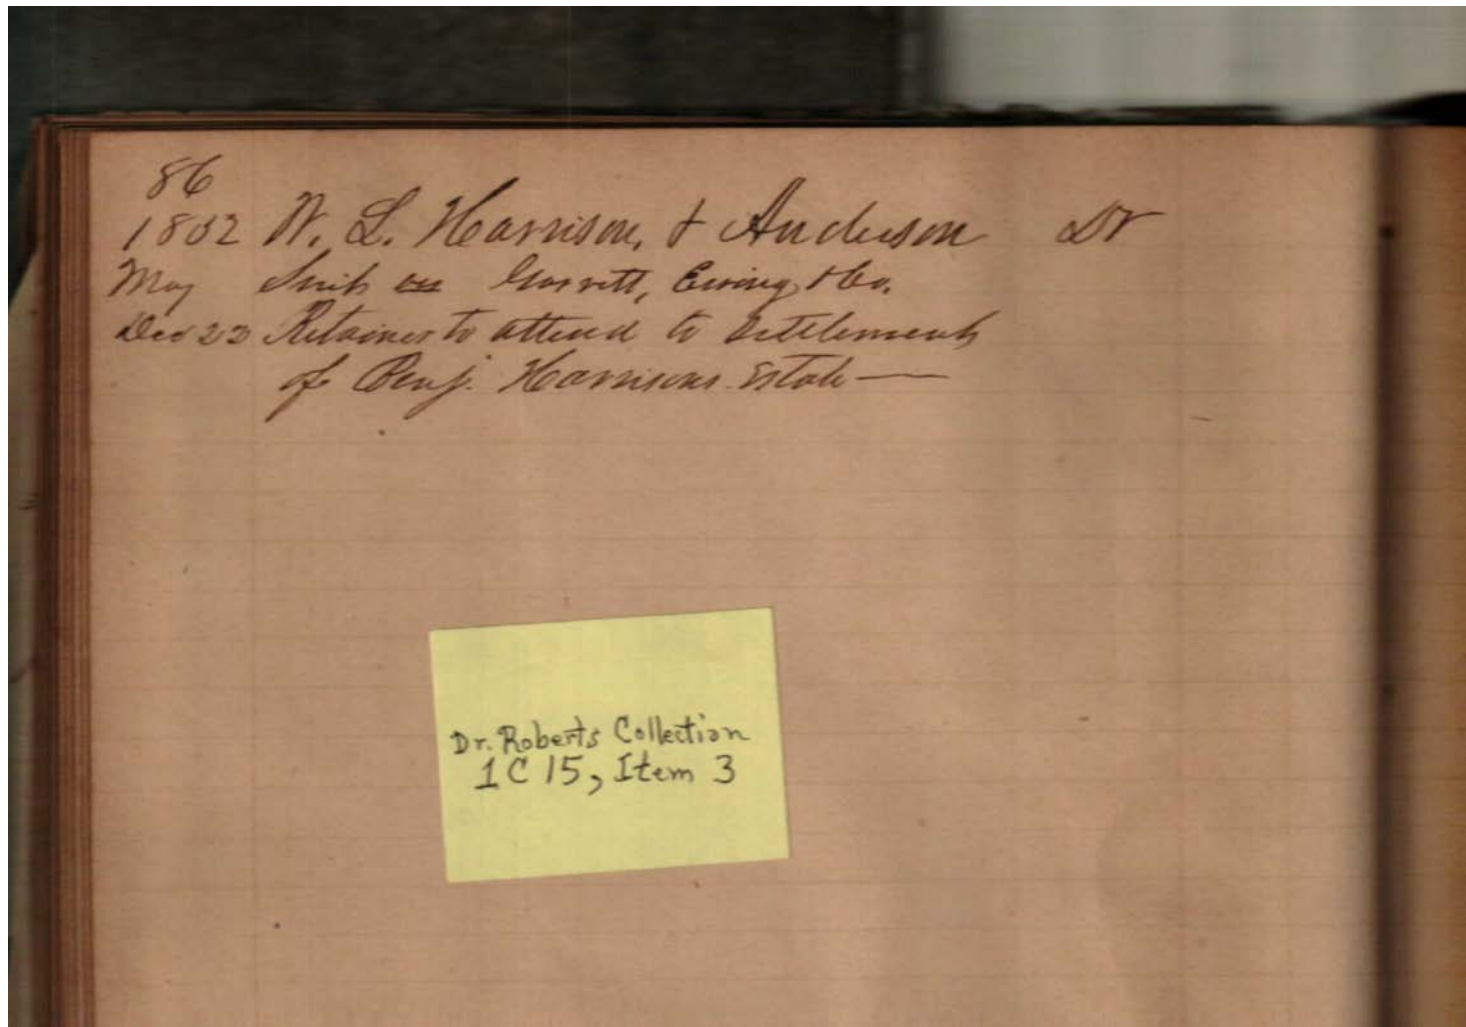 86
1882 W. L. Harrison, & Anderson Dr
May Suit Garrett, Ewing & Co.
Dec 22 Retainer to attend to settlement
of Benj. Harrisons Estate —
Dr. Roberts Collection
1C15, Item 3